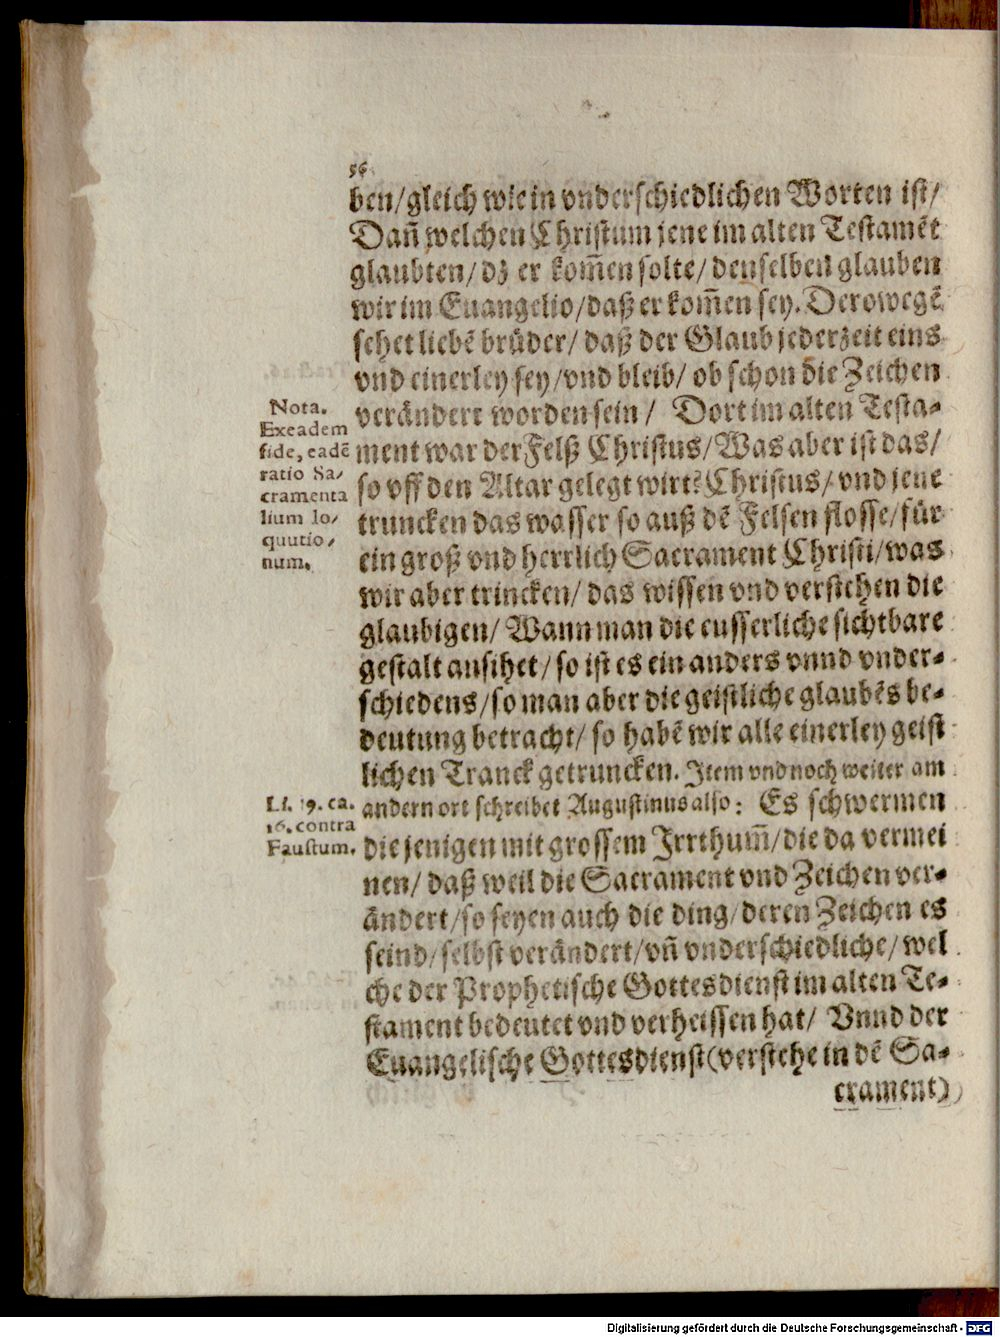 56
ben/gleich wie in vnderschiedlichen Worten ist/
Dañ welchen Christum jene im alten Testamẽt
glaubten/ dz er kom̃en solte/ denselben glauben
wir im Euangelio/daß er kom̃en sey. Derowegẽ
sehet liebẽ brüder/ daß der Glaub jederzeit eins
vnd einerley sey/vnd bleib/ ob schon die Zeichen
verändert worden sein/ Dort im alten Testa-
ment war der Felß Christus/Was aber ist das/
so vff den Altar gelegt wirt? Christus/ vnd jene
truncken das wasser so auß dẽ Felsen flosse/für
ein groß vnd herrlich Sacrament Christi/was
wir aber trincken/ das wissen vnd verstehen die
glaubigen/ Wann man die eusserliche sichtbare
gestalt ansihet/so ist es ein anders vnnd vnder-
schiedens/so man aber die geistliche glaubẽs be-
deutung betracht/ so habẽ wir alle einerley geist
lichen Tranck getruncken. Item vnd noch weiter am
andern ort schreibet Augustinus also: Es schwermen
die jenigen mit grossem Irrthum̃/die da vermei
nen/ daß weil die Sacrament vnd Zeichen ver-
ändert/so seyen auch die ding/deren Zeichen es
seind/selbst verändert/vñ vnderschiedliche/ wel
che der Prophetische Gottesdienst im alten Te-
stament bedeutet vnd verheissen hat/ Vnnd der
Euangelische Gottesdienst(verstehe in dẽ Sa-
crament)
Nota.
Ex eadem
fide, eadẽ
ratio Sa-
cramenta
lium lo-
quutio-
num.
Li. 19. ca.
16. contra
Faustum.
Digitalisierung gefördert durch die Deutsche Forschungsgemeinschaft - DFG